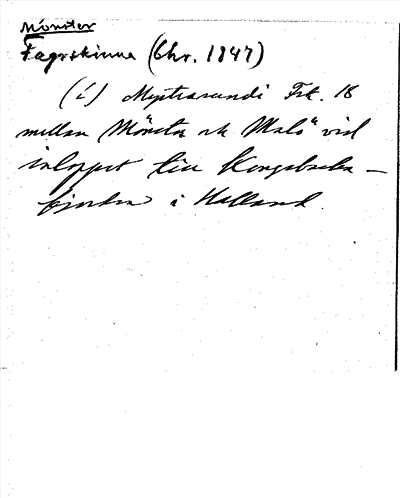 Mönster
Fagrskinna (Chr. 1847)
(i) Mystrasundi Fsk. 18
mellan Mönster ok Malö vid
inloppet till Kongsbacka-
fjorden i Halland.